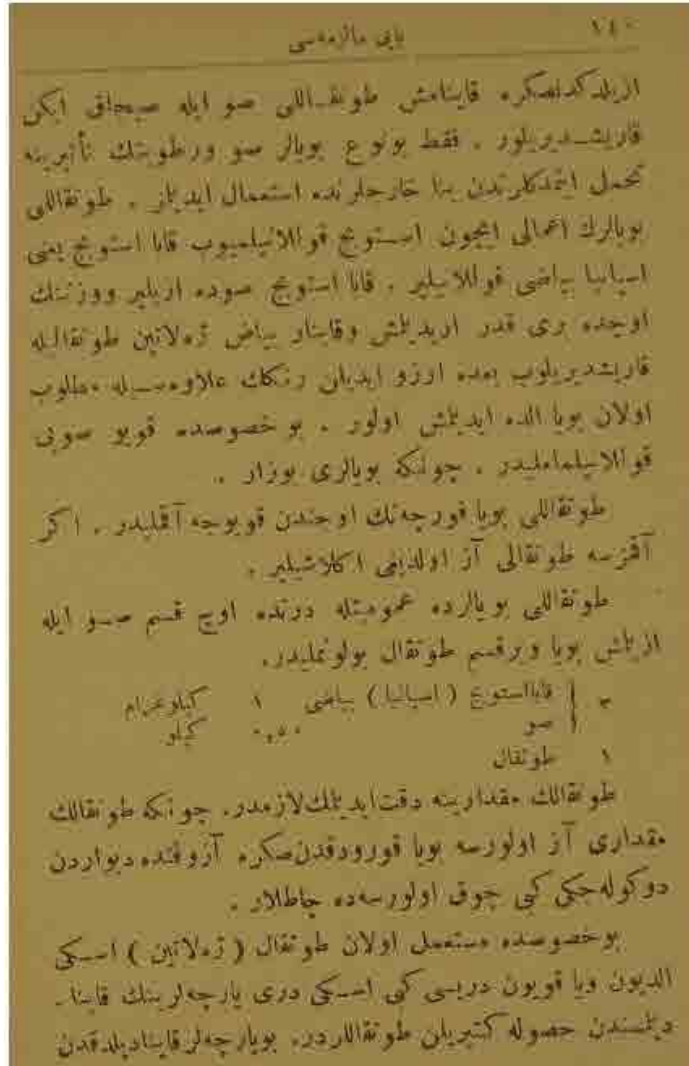 ١٤٠
یاپی مالزمه‌سی
ازیلدكدنصكره قاینامش طوتقاللی صو ایله صیجاق ایكن
قاریشدیریلور . فقط بونوع بویالر صو ورطوبتك تأثیرینه
تحمل ایتمدكلرندن بنا خارجلرنده استعمال ایدیلمز . طوتقاللی
بویالرك اعمالی ایچون استوبج قوللانیلمیوب قابا استوبج یعنی
اسپانیا بیاضی قوللانیلیر . قابا استوبج صوده ازیلیر ووزننك
اوچده بری قدر اریدیلمش وقاینار بیاض ژه‌لاتین طوتقالیله
قاریشدیریلوب بعده ارزو ایدیلن رنكك علاوه‌سیله مطلوب
اولان بویا الده ایدیلمش اولور . بو خصوصده قویو صویی
قوللانیلماملیدر . چونكه بویالری بوزار .
طوتقاللی بویا فورچه‌نك اوجندن قویوجه آقملیدر . اكر
آقمزسه طوتقالی آز اولدیغی اكلاشیلیر .
طوتقاللی بویالرده عمومیتله درتده اوچ قسم صو ایله
ازیلمش بویا وبرقسم طوتقال بولونملیدر.
٣ { قابااستوبج ( اسپانیا ) بیاضی ١ كیلوغرام
صو ٠,٥٠ كیلو
١ طوتقال
طوتقالك مقدارینه دقت ایدیلمك لازمدر. چونكه طوتقالك
مقداری آز اولورسه بویا قورودقدن‌صكره آزوقتده دیواردن
دوكوله‌جكی كبی چوق اولورسه‌ده چاطلار .
بوخصوصده مستعمل اولان طوتقال ( ژه‌لاتین ) اسكی
الدیون ویا قویون دریسی كبی اسكی دری پارچه‌لرینك قاینا-
دیلمسندن حصوله كتیریلن طوتقاللردر. بوپارچه‌لر قاینادیلدقدن